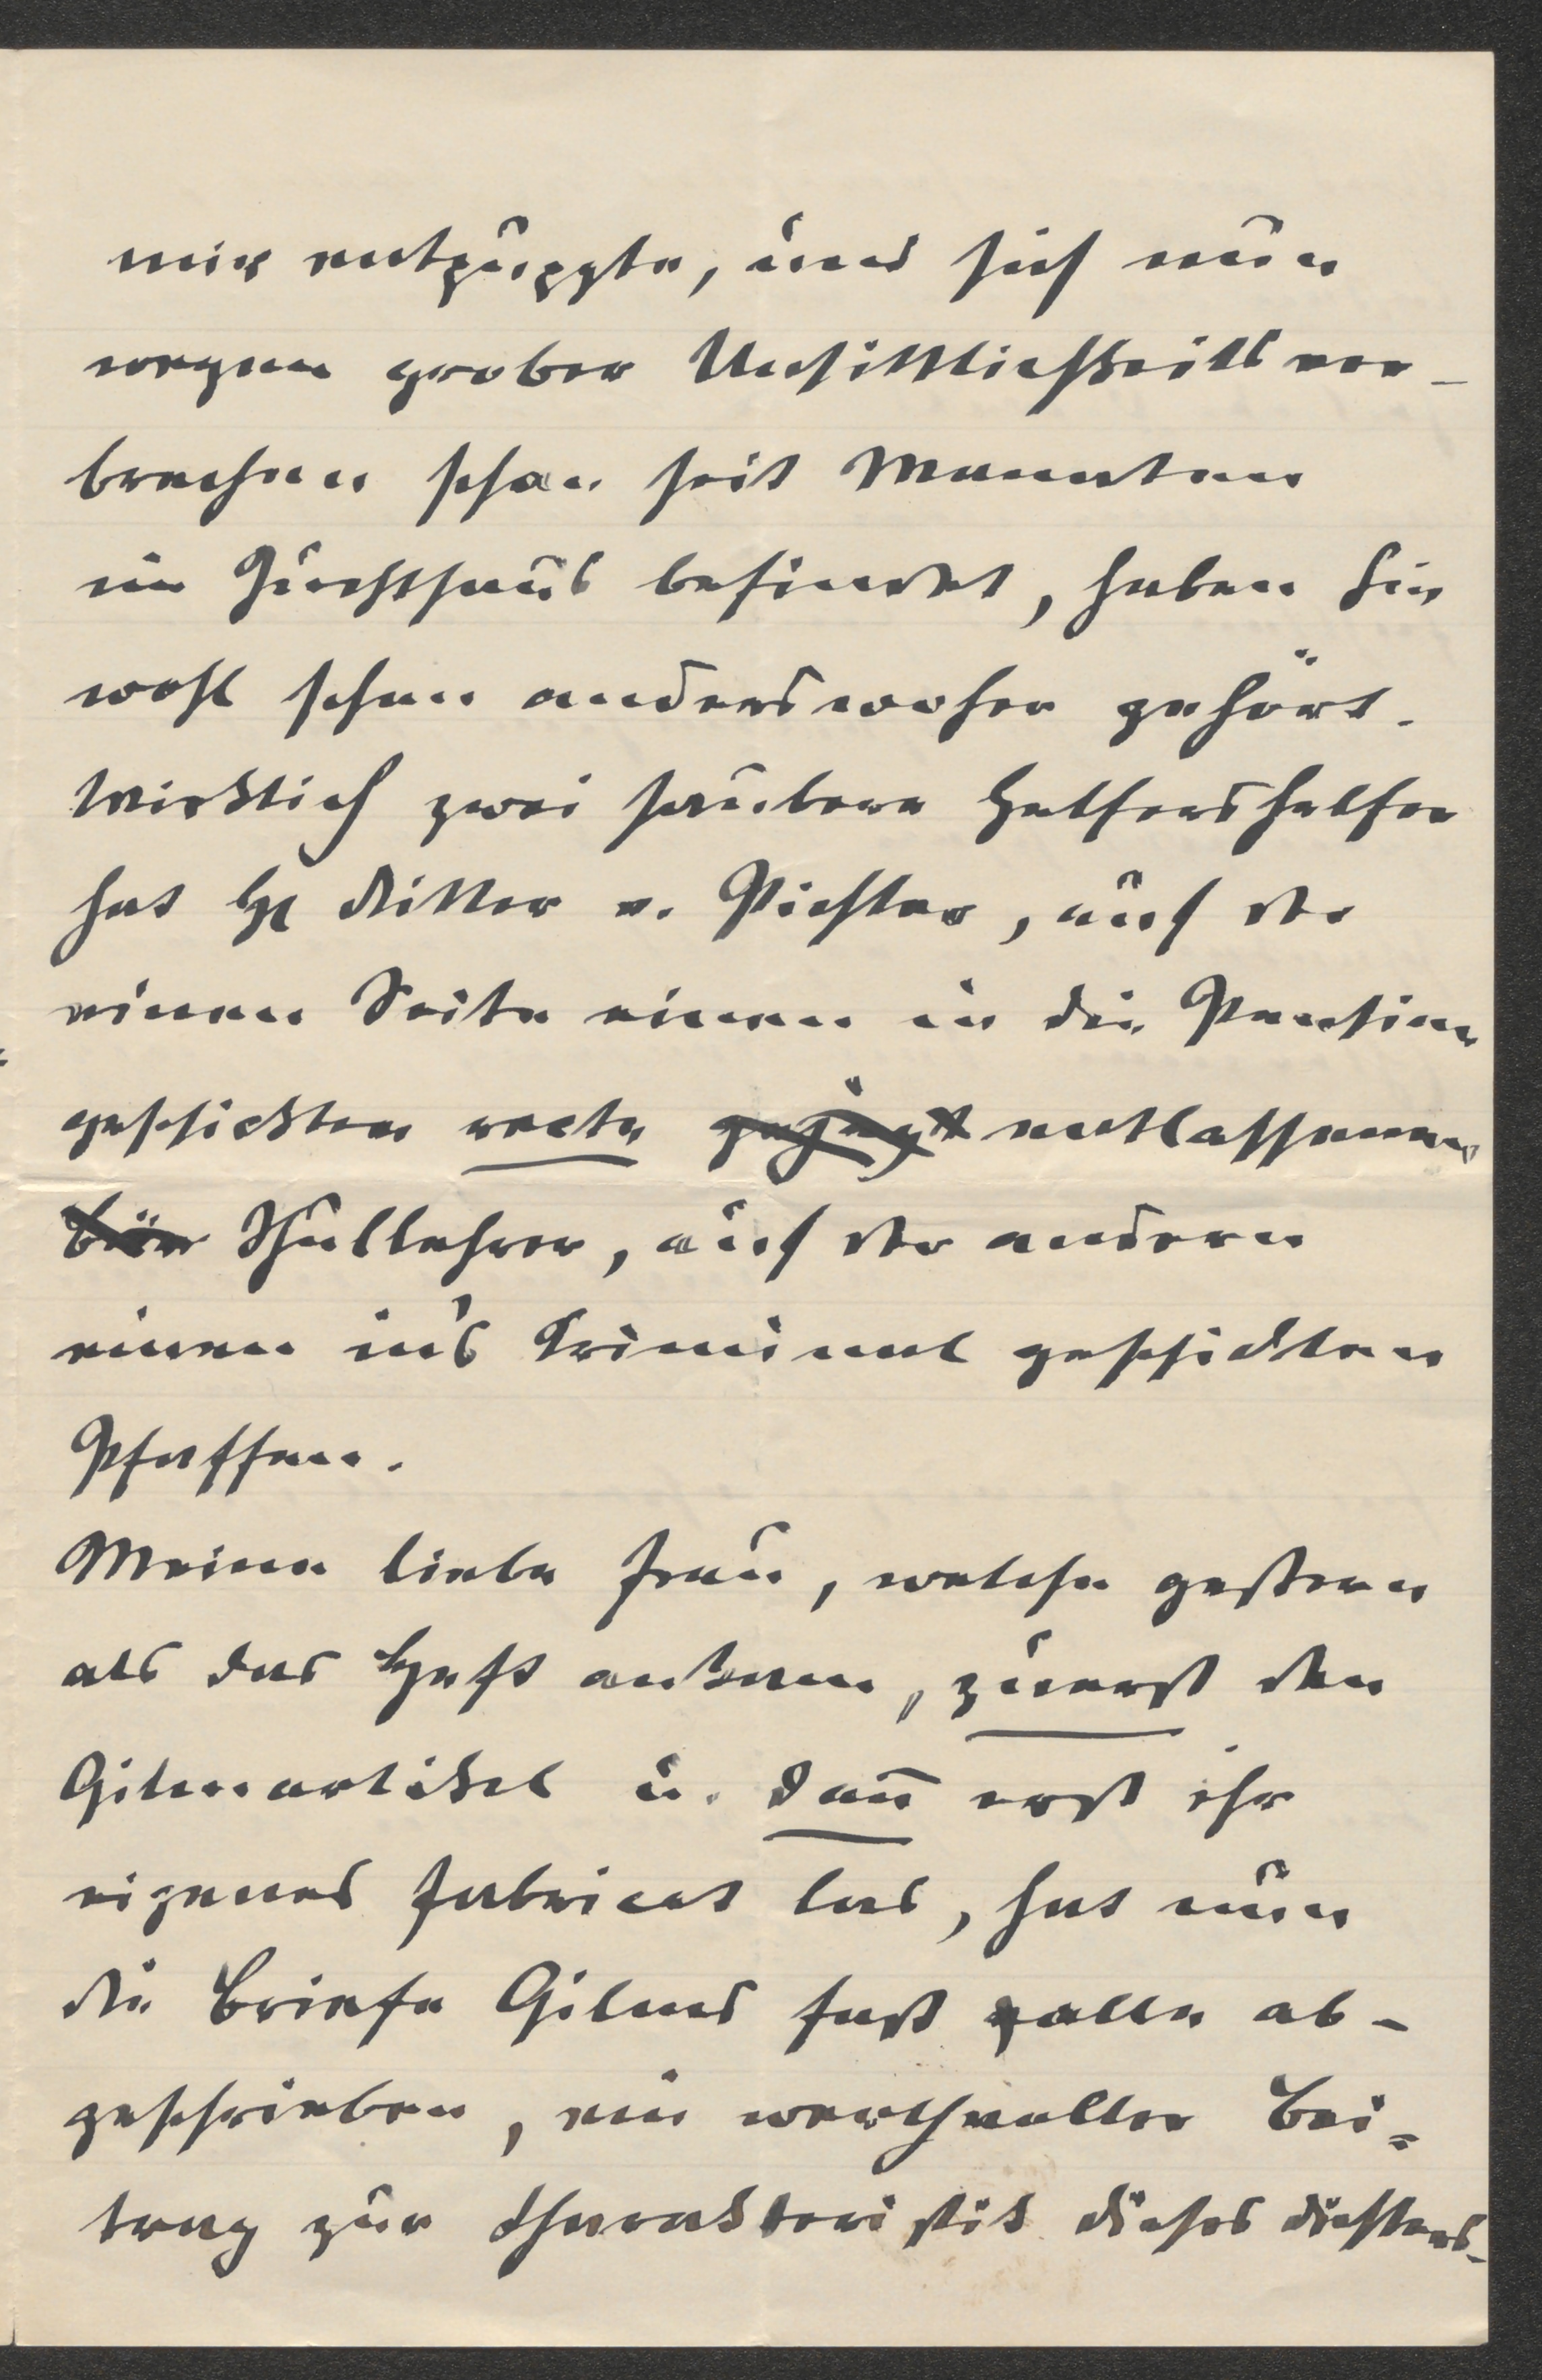 mir entpuppte, und sich nun
wegen grober Unsittlichkeitsver-
brechen schon seit Monaten
im Zuchthaus befindet, haben Sie
wohl schon anderswoher gehört.
Wirklich zwei saubere Helfershelfer
hat H Ritter v. Pichler, auf der
einen Seite einen in die Pension
geschickten recte gejagt entlassenen
Schullehrer, auf der andern
einen in's Criminal geschickten
Pfaffen.
Meine liebe Frau, welche gestern
als das Heft ankam, zuerst den
Gilmartikel u. dann erst ihr
eigenes Fabricat las, hat nun
die Briefe Gilms fast alle ab-
geschrieben, ein werthvoller Bei=
trag zur Charakteristik dieses Dichters.